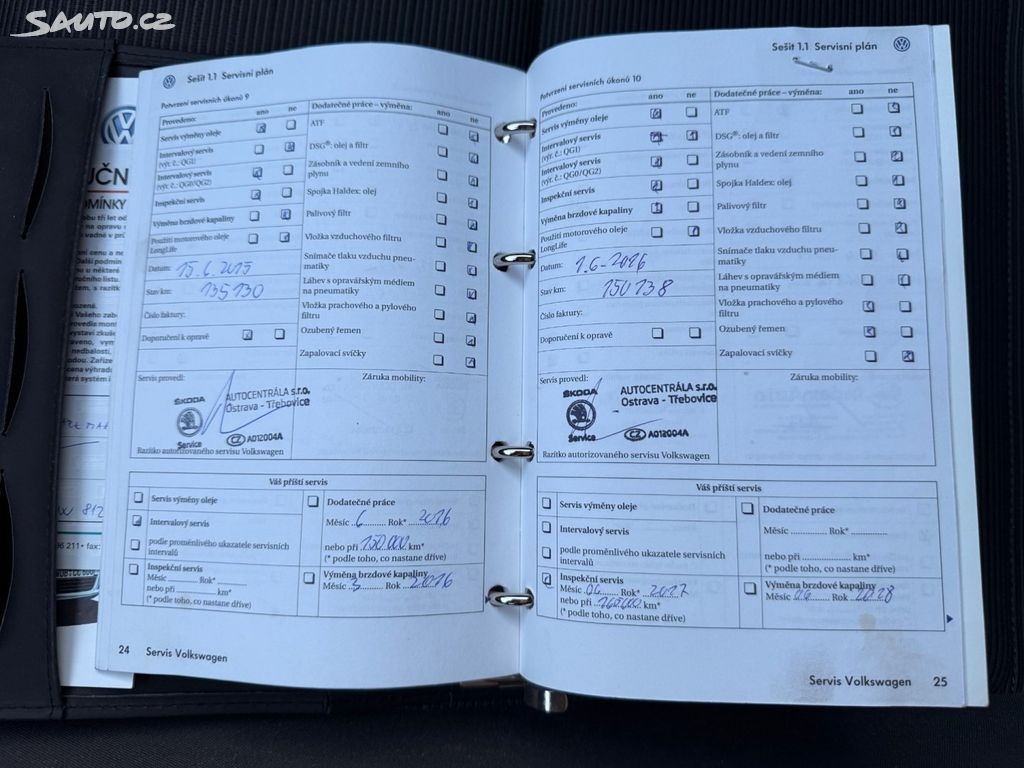 SAUTO.CZ
Sešit 1.1 Servisní plán
Potvrzení servisních úkonů 9
Provedeno:
ano ne
Servis výměny oleje
Intervalový servis
(výr. č.: QG1)
Intervalový servis
(výr. č.: QG0/QG2)
Inspekční servis
Výměna brzdové kapaliny
Použití motorového oleje
LongLife
Datum: 15.6.2015
Stav km: 135130
Číslo faktury:
Doporučení k opravě
Dodatečné práce – výměna:
ano ne
ATF
DSG®: olej a filtr
Zásobník a vedení zemního
plynu
Spojka Haldex: olej
Palivový filtr
Vložka vzduchového filtru
Snímače tlaku vzduchu pneu-
matiky
Láhev s opravářským médiem
na pneumatiky
Vložka prachového a pylového
filtru
Ozubený řemen
Zapalovací svíčky
Servis provedl:
ŠKODA
Service
AUTOCENTRÁLA s.r.o.
Ostrava - Třebovice
CZ A012004A
Razítko autorizovaného servisu Volkswagen
Záruka mobility:
Váš příští servis
Servis výměny oleje
Intervalový servis
podle proměnlivého ukazatele servisních
intervalů
Inspekční servis
Měsíc .......... Rok* ..........
nebo při .......... km*
(* podle toho, co nastane dříve)
Dodatečné práce
Měsíc 6 Rok* 2016
nebo při 150.000 km*
(* podle toho, co nastane dříve)
Výměna brzdové kapaliny
Měsíc 3 Rok 2016
24 Servis Volkswagen
Sešit 1.1 Servisní plán
Potvrzení servisních úkonů 10
Provedeno:
ano ne
Servis výměny oleje
Intervalový servis
(výr. č.: QG1)
Intervalový servis
(výr. č.: QG0/QG2)
Inspekční servis
Výměna brzdové kapaliny
Použití motorového oleje
LongLife
Datum: 1.6.2016
Stav km: 150138
Číslo faktury:
Doporučení k opravě
Dodatečné práce – výměna:
ano ne
ATF
DSG®: olej a filtr
Zásobník a vedení zemního
plynu
Spojka Haldex: olej
Palivový filtr
Vložka vzduchového filtru
Snímače tlaku vzduchu pneu-
matiky
Láhev s opravářským médiem
na pneumatiky
Vložka prachového a pylového
filtru
Ozubený řemen
Zapalovací svíčky
Servis provedl:
ŠKODA
Service
AUTOCENTRÁLA s.r.o.
Ostrava - Třebovice
CZ A012004A
Razítko autorizovaného servisu Volkswagen
Záruka mobility:
Váš příští servis
Servis výměny oleje
Intervalový servis
podle proměnlivého ukazatele servisních
intervalů
Inspekční servis
Měsíc 06 Rok* 2017
nebo při 165.000 km*
(* podle toho, co nastane dříve)
Dodatečné práce
Měsíc .......... Rok* ..........
nebo při .......... km*
(* podle toho, co nastane dříve)
Výměna brzdové kapaliny
Měsíc 06 Rok 2018
Servis Volkswagen 25